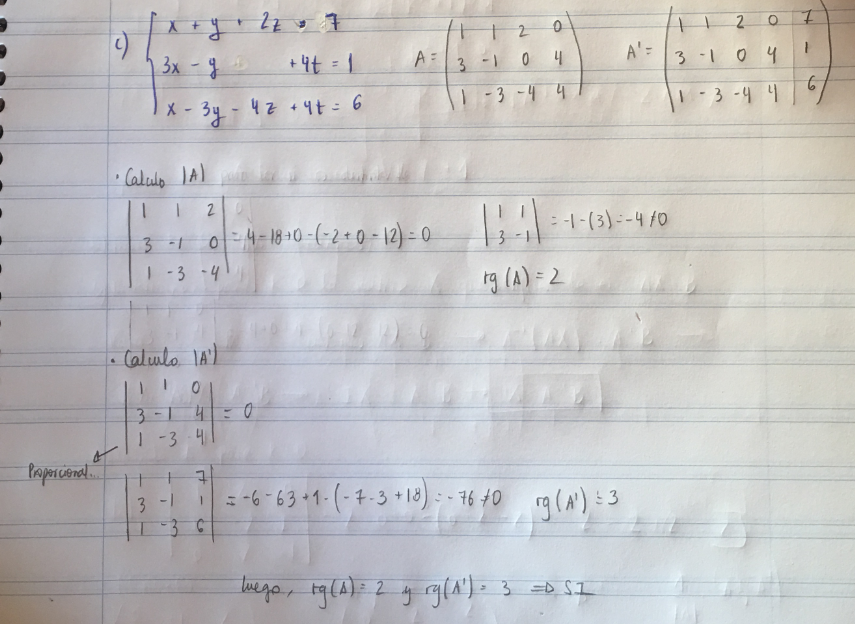 c) { x + y + 2z = 7
3x - y + 4t = 1
x - 3y - 4z + 4t = 6
A = ( 1 1 2 0
3 -1 0 4
1 -3 -4 4 )
A' = ( 1 1 2 0 7
3 -1 0 4 1
1 -3 -4 4 6 )
· Calculo |A|
| 1 1 2 |
| 3 -1 0 | = 4 - 18 + 0 - (-2 + 0 - 12) = 0
| 1 -3 -4 |
| 1 1 |
| 3 -1 | = -1 - (3) = -4 ≠ 0
rg (A) = 2
· Calculo |A'|
| 1 1 0 |
| 3 -1 4 | = 0
| 1 -3 4 |
Proporcional..
| 1 1 7 |
| 3 -1 1 | = -6 - 63 + 1 - (-7 - 3 + 18) = -76 ≠ 0 rg (A') = 3
| 1 -3 6 |
luego, rg(A) = 2 y rg(A') = 3 => SI